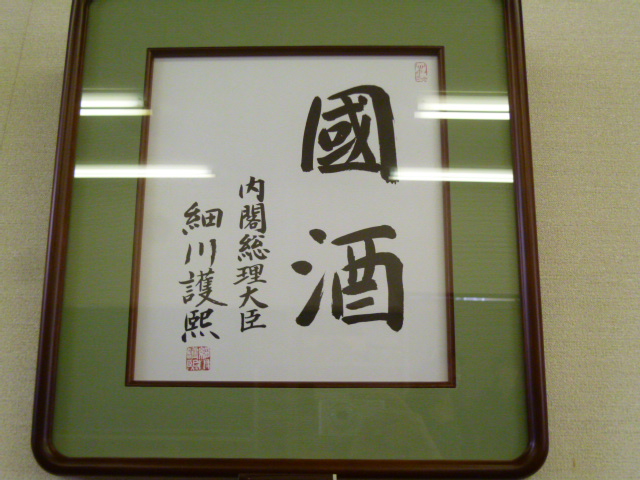 國酒
内閣総理大臣
細川護熙